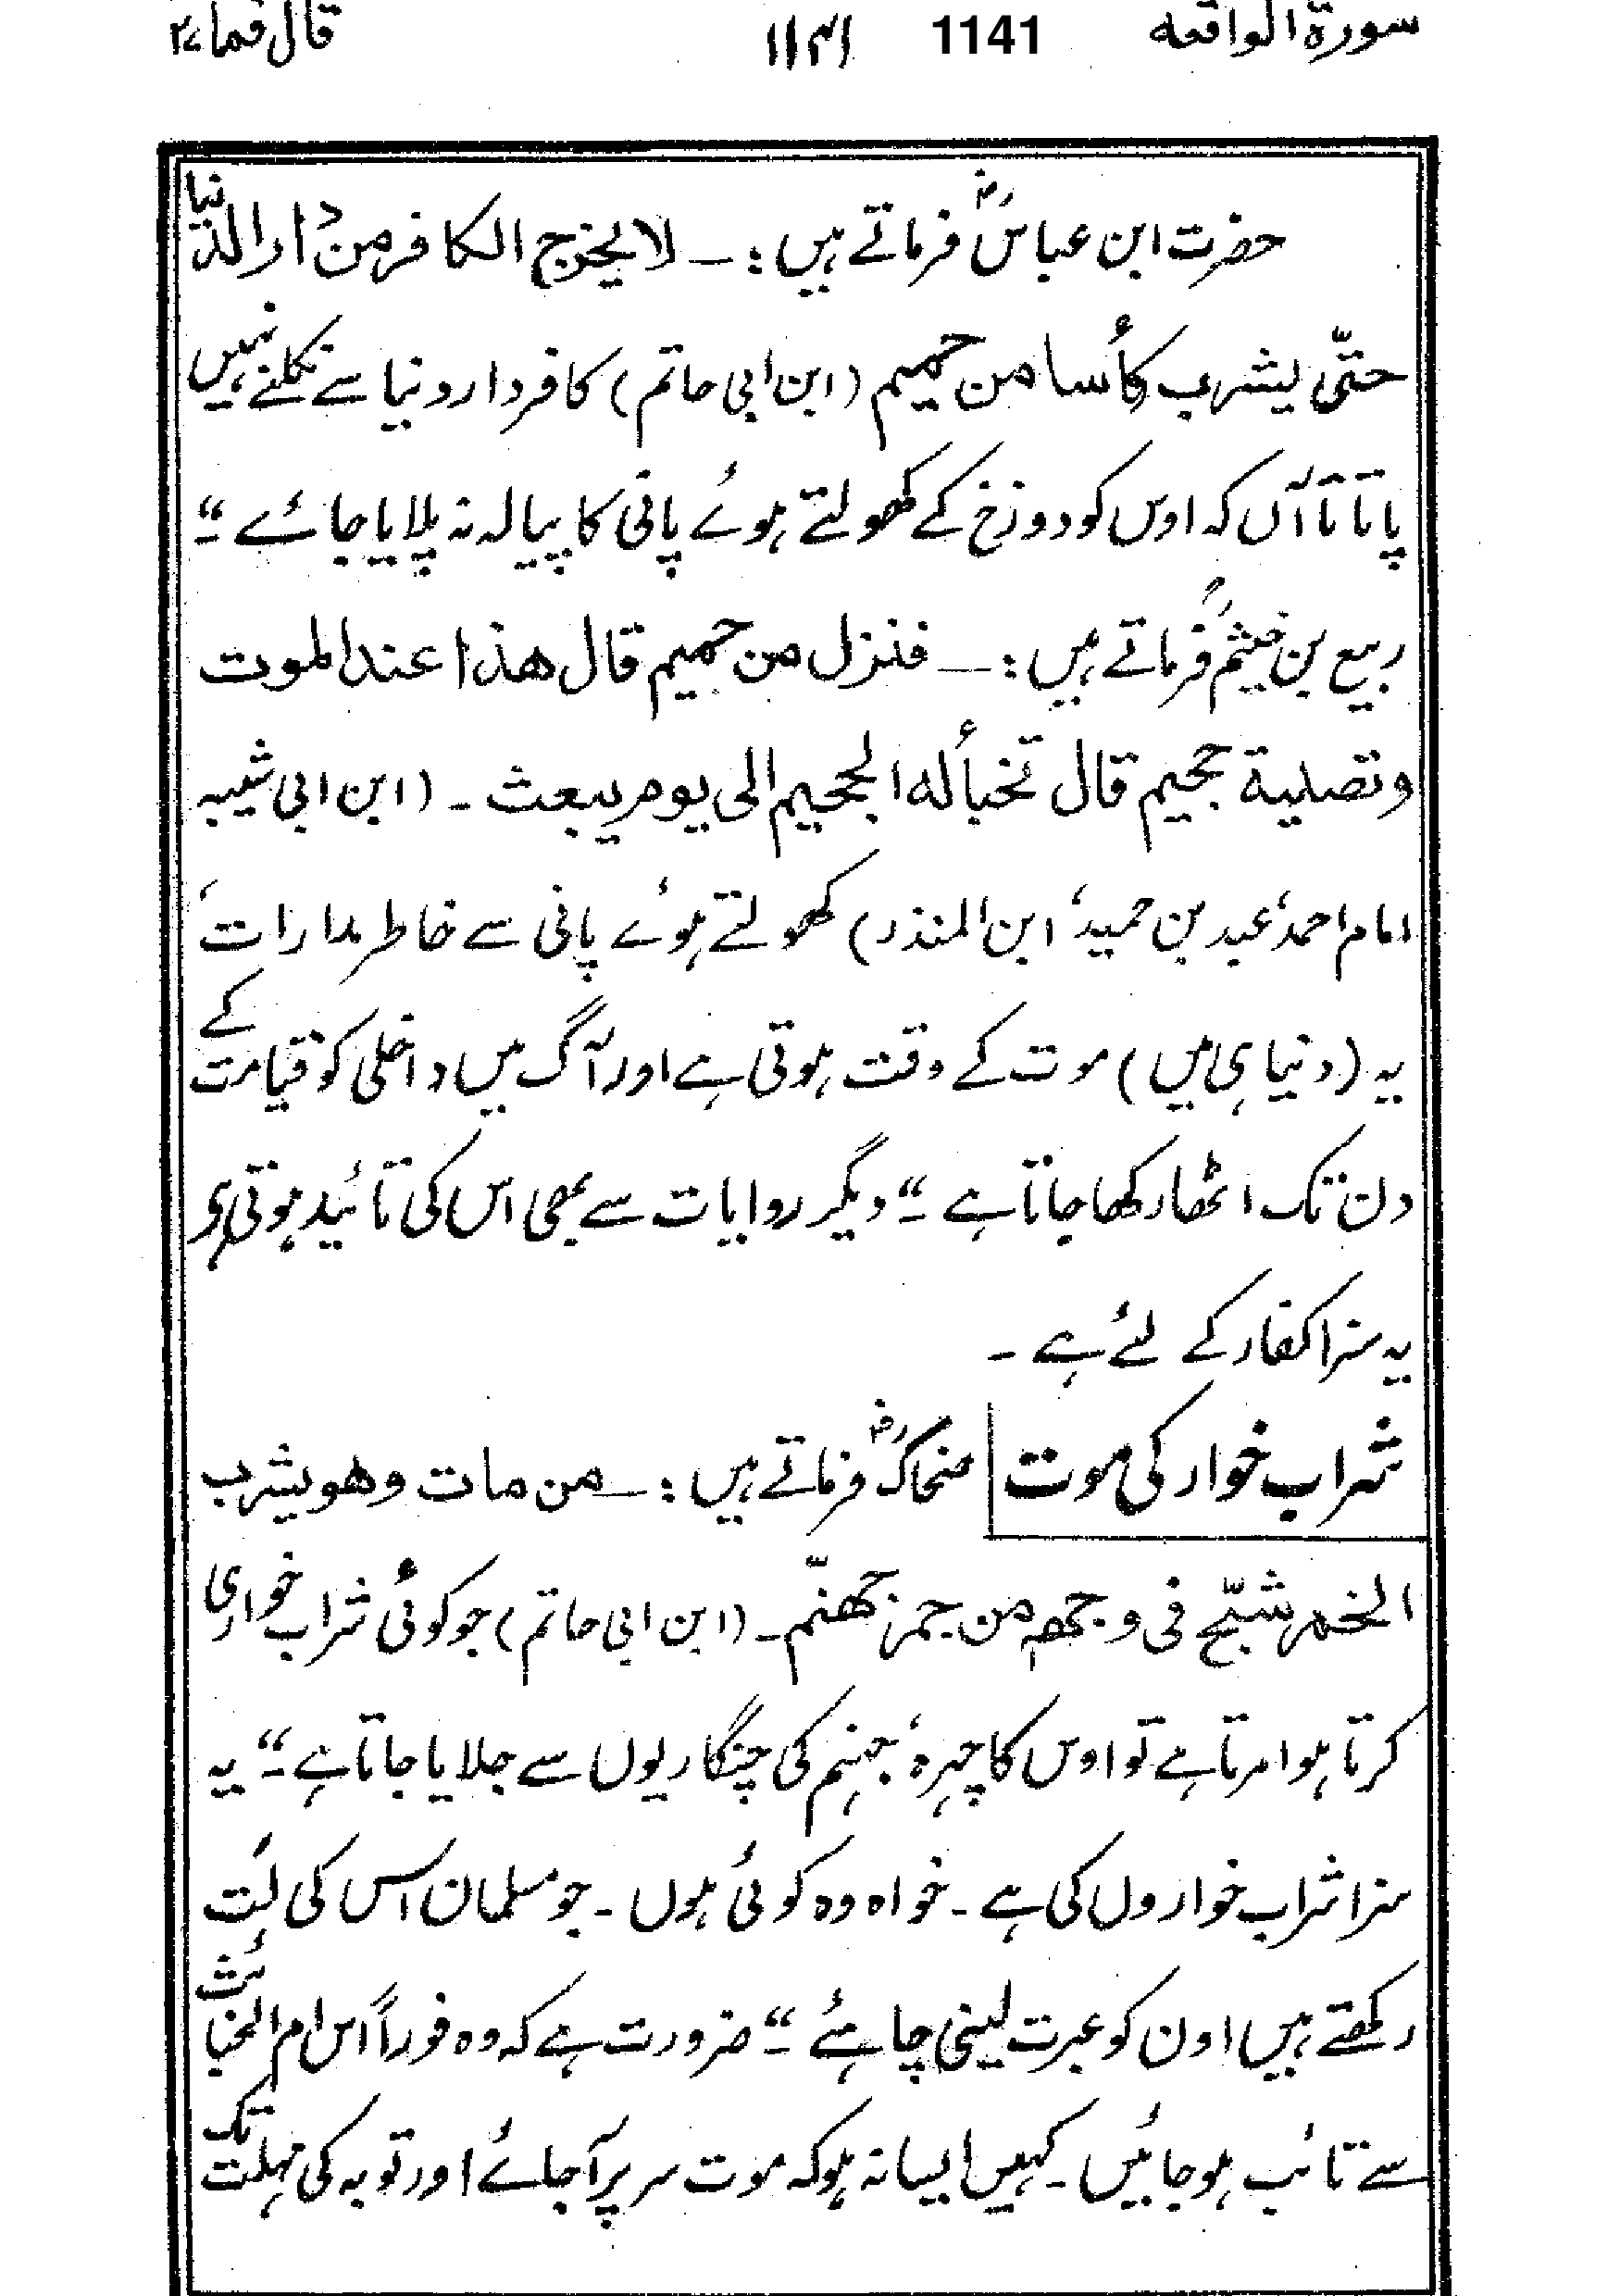 سورۃ الواقعہ 1141 ۱۱۴۱ قال فما ۲۷
حضرت ابن عباسؓ فرماتے ہیں :ـ لا یخرج الکافر من دار الدنیا
حتّی یشرب کأسا من حمیم (ابن ابی حاتم) کافر دار دنیا سے نکلنے نہیں
پاتا تا آں کہ اوس کو دوزخ کے کھولتے ہوئے پانی کا پیالہ نہ پلایا جائے ۔“
ربیع بن خیثمؒ فرماتے ہیں :ـ فنزل من حمیم قال ھذا عند الموت
وتصلیۃ جحیم قال تخبأ لہ الجحیم الی یوم یبعث ۔ (ابن ابی شیبہ
امام احمد‘ عبد بن حمید‘ ابن المنذر) کھولتے ہوئے پانی سے خاطر مدارات‘
یہ (دنیا ہی میں) موت کے وقت ہوتی ہے اور آگ میں داخلی کو قیامت کے
دن تک اٹھا رکھا جاتا ہے ۔“ دیگر روایات سے بھی اس کی تائید ہوتی ہی
یہ سزا کفار کے لئے ہے ۔
شراب خوار کی موت ضحاکؓ فرماتے ہیں :ـ من مات وھو یشرب
الخمر شبّح فی وجھہ من جمر جھنّم ۔ (ابن ابی حاتم) جو کوئی شراب خواری
کرتا ہوا مرتا ہے تو اوس کا چہرہ‘ جہنم کی چنگاریوں سے جلایا جاتا ہے ۔“ یہ
سزا شراب خواروں کی ہے ۔ خواہ وہ کوئی ہوں ۔ جو مسلمان اس کی لت
رکھتے ہیں اون کو عبرت لینی چاہئے ۔“ ضرورت ہے کہ وہ فوراً اس ام الخبائث
سے تائب ہو جائیں ۔ کہیں ایسا نہ ہو کہ موت سر پر آجائے اور توبہ کی مہلت تک